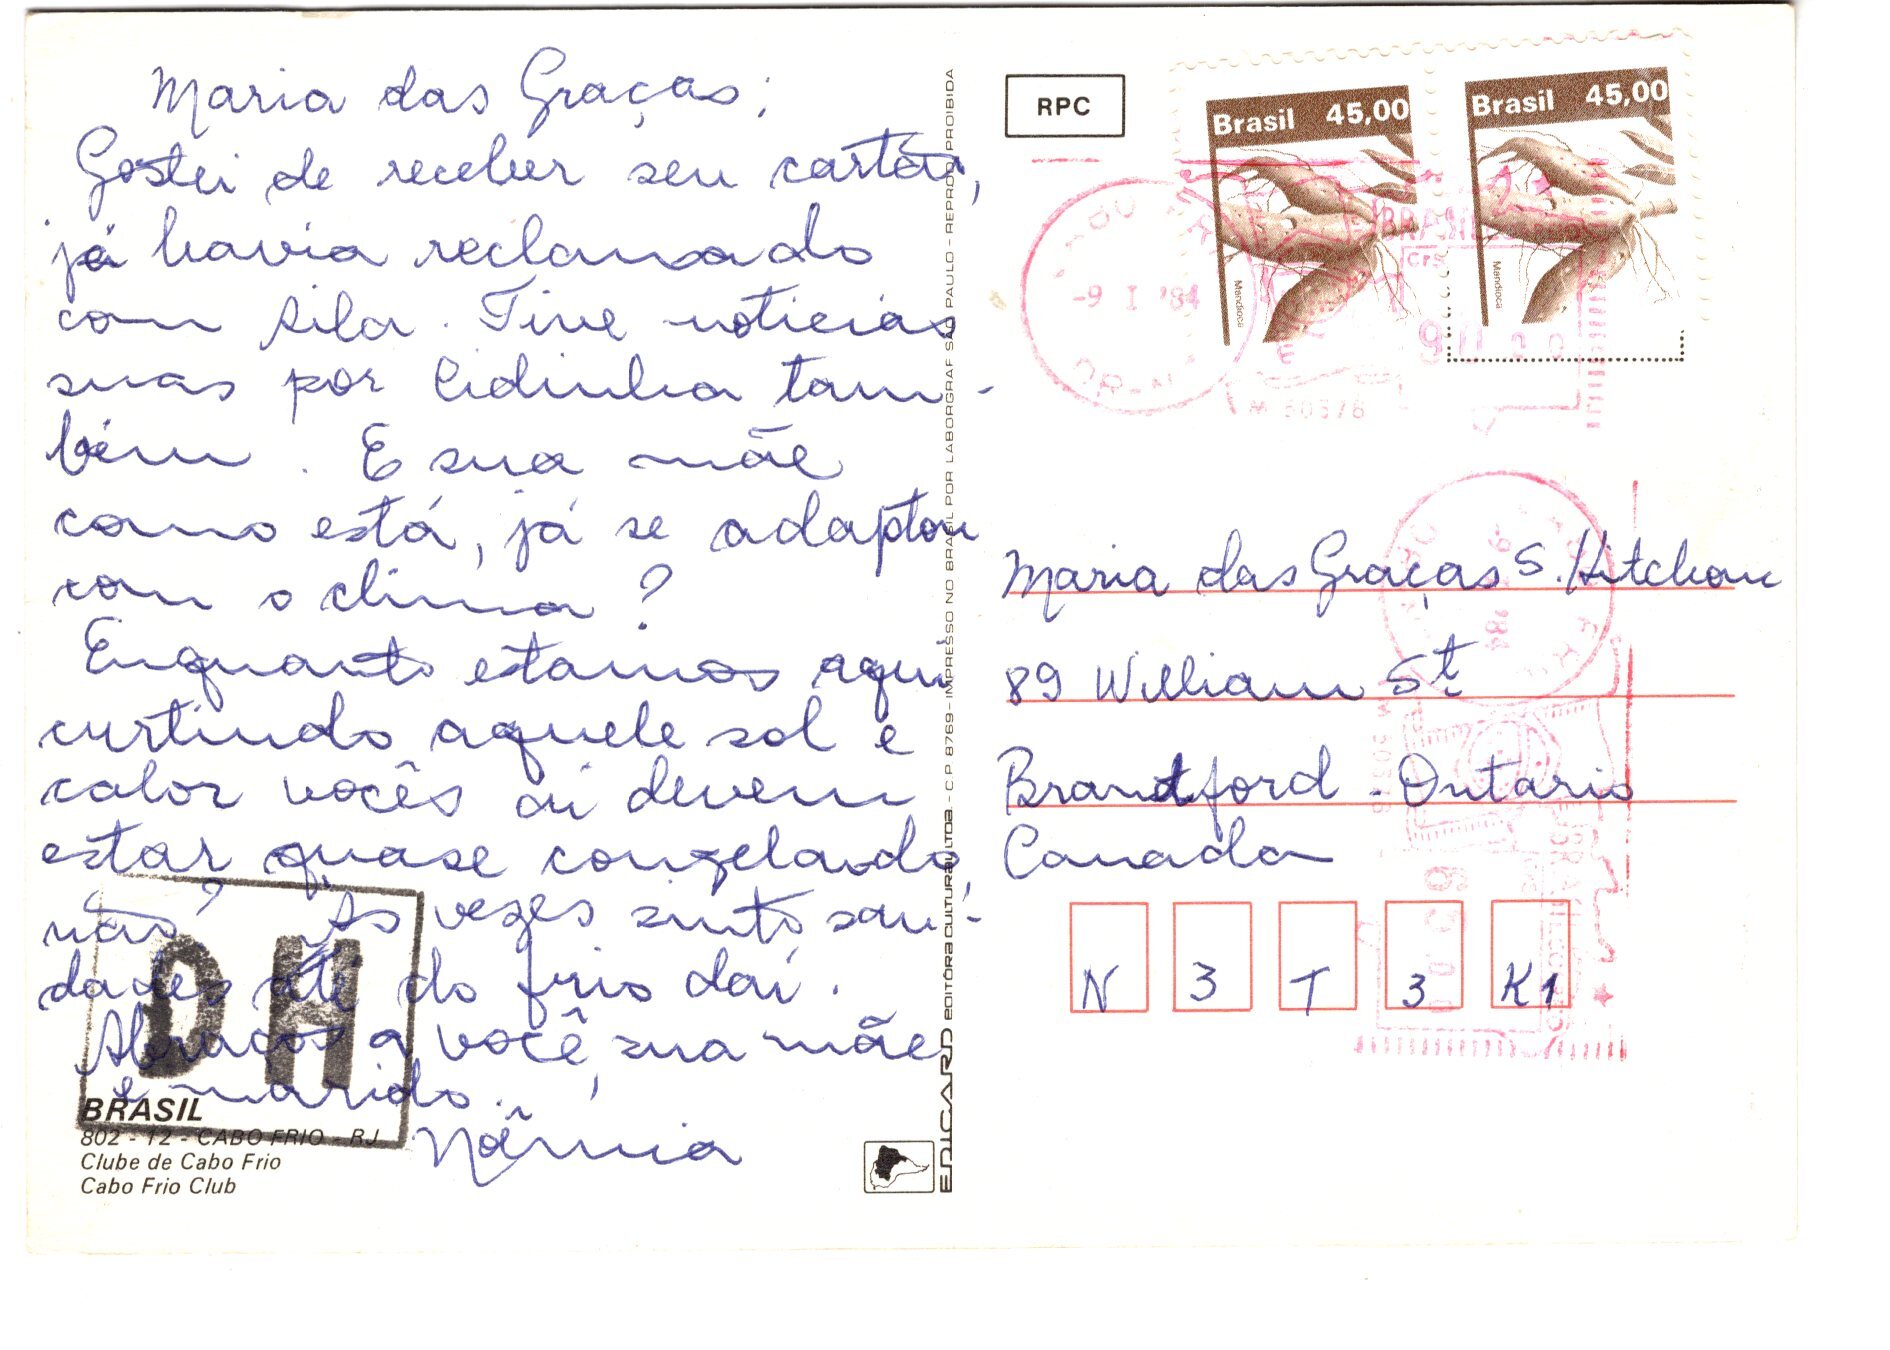 Maria das Graças;
Gostei de receber seu cartão,
já havia reclamado
com Sila. Tive noticias
suas por Cidinha tam-
bém. E sua mãe
como está, já se adaptou
com o clima?
Enquanto estamos aqui
curtindo aquele sol e
calor vocês aí devem
estar quase congelando,
não? As vezes sinto sau-
dades até do frio daí.
Abraços a você, sua mãe
e marido.
DH
BRASIL
802 - 12 - CABO FRIO - RJ
Clube de Cabo Frio
Cabo Frio Club
EDICARD EDITORA CULTURAL LTDA - C.P. 8769 - IMPRESSO NO BRASIL POR LABORGRAF SÃO PAULO - REPROD. PROIBIDA
RPC
Brasil 45,00
Mandioca
Brasil 45,00
Mandioca
-9 I '84
BRASIL
Maria das Graças S. Hitchon
89 William St
Brantford - Ontario
Canada
N 3 T 3 K1